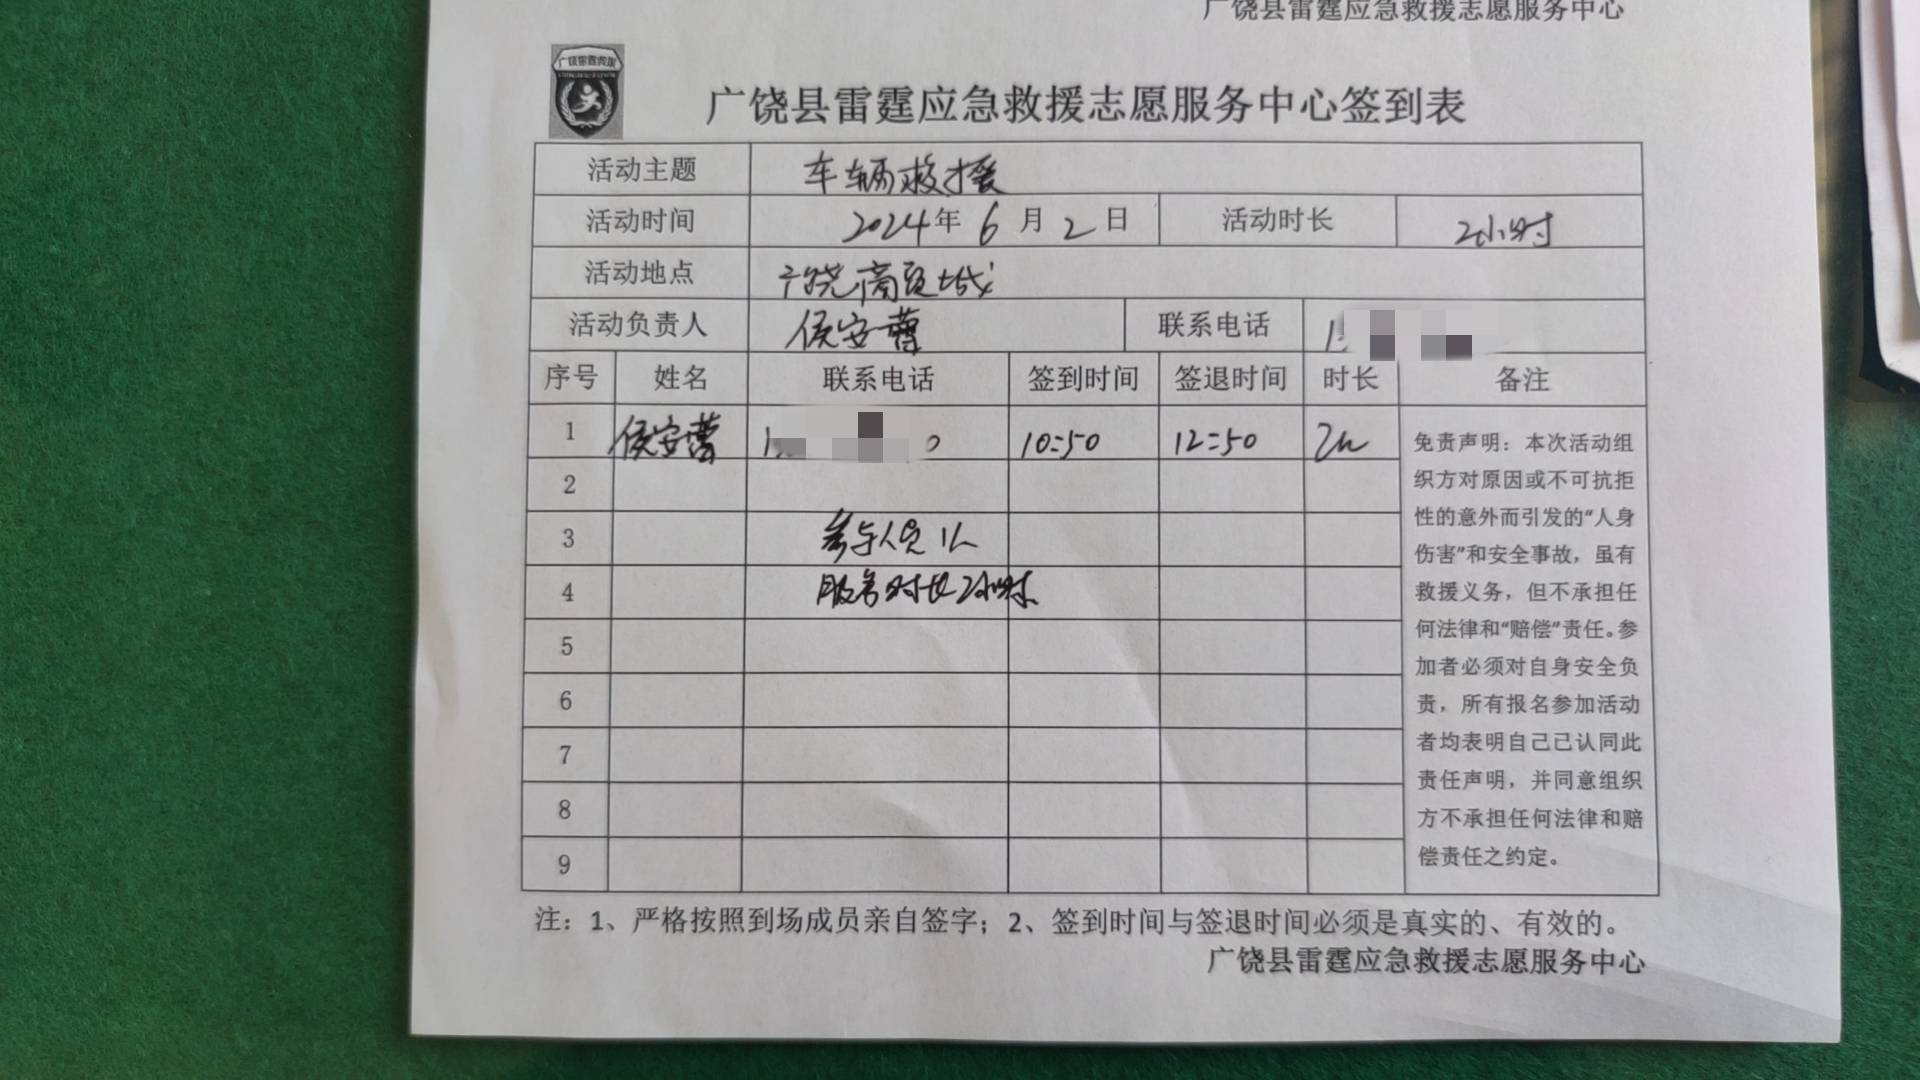 广饶县雷霆应急救援志愿服务中心
广饶雷霆救援
广饶县雷霆应急救援志愿服务中心签到表
活动主题 车辆救援
活动时间 2024年 6月 2日 活动时长 2小时
活动地点 广饶商贸城
活动负责人 侯安蕾 联系电话 1
序号 姓名 联系电话 签到时间 签退时间 时长 备注
1 侯安蕾 1 0 10:50 12:50 2h
2
3 参与人员 1人
4 服务时长 2小时
5
6
7
8
9
免责声明：本次活动组
织方对原因或不可抗拒
性的意外而引发的“人身
伤害”和安全事故，虽有
救援义务，但不承担任
何法律和“赔偿”责任。参
加者必须对自身安全负
责，所有报名参加活动
者均表明自己已认同此
责任声明，并同意组织
方不承担任何法律和赔
偿责任之约定。
注：1、严格按照到场成员亲自签字；2、签到时间与签退时间必须是真实的、有效的。
广饶县雷霆应急救援志愿服务中心